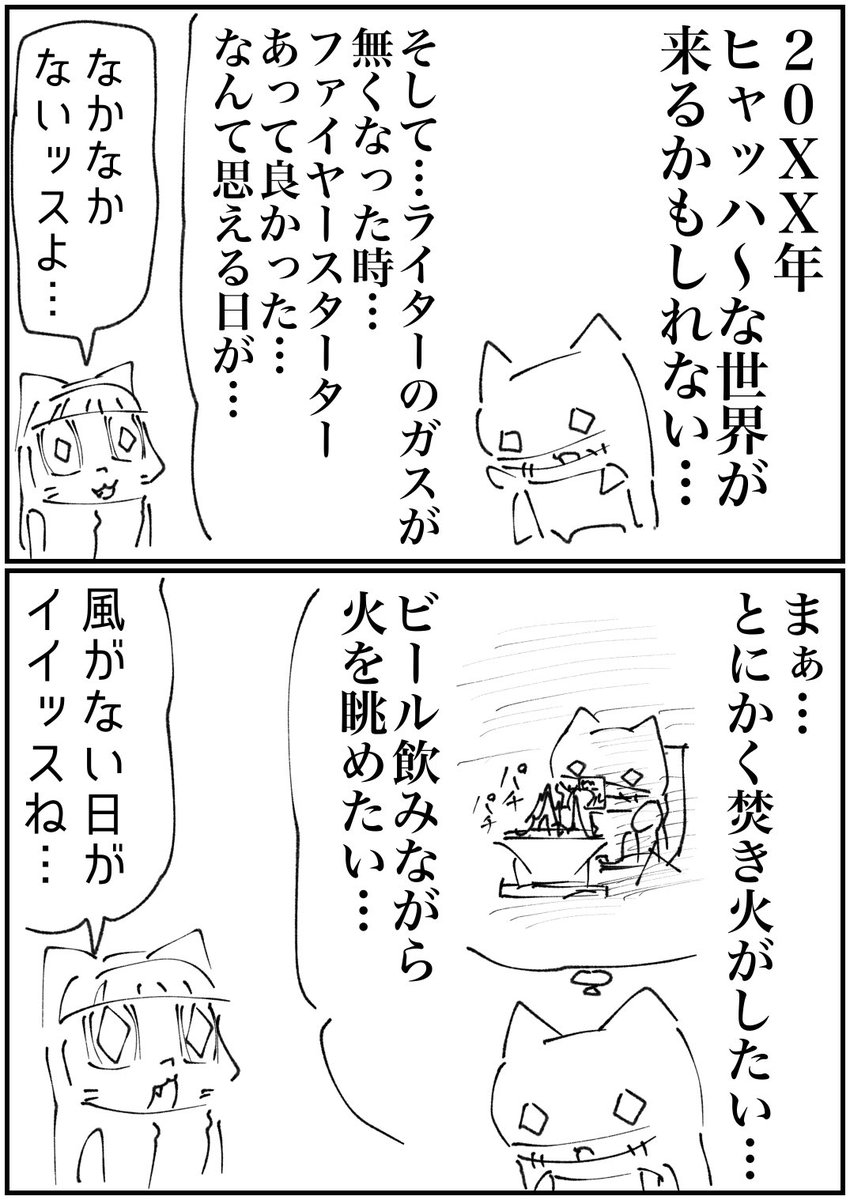 20XX年
ヒャッハ〜な世界が
来るかもしれない…
そして…ライターのガスが
無くなった時…
ファイヤースターター
あって良かった…
なんて思える日が…
なかなか
ないッスよ…
まぁ…
とにかく焚き火がしたい…
パチ
パチ
ビール飲みながら
火を眺めたい…
風がない日が
イイッスね…